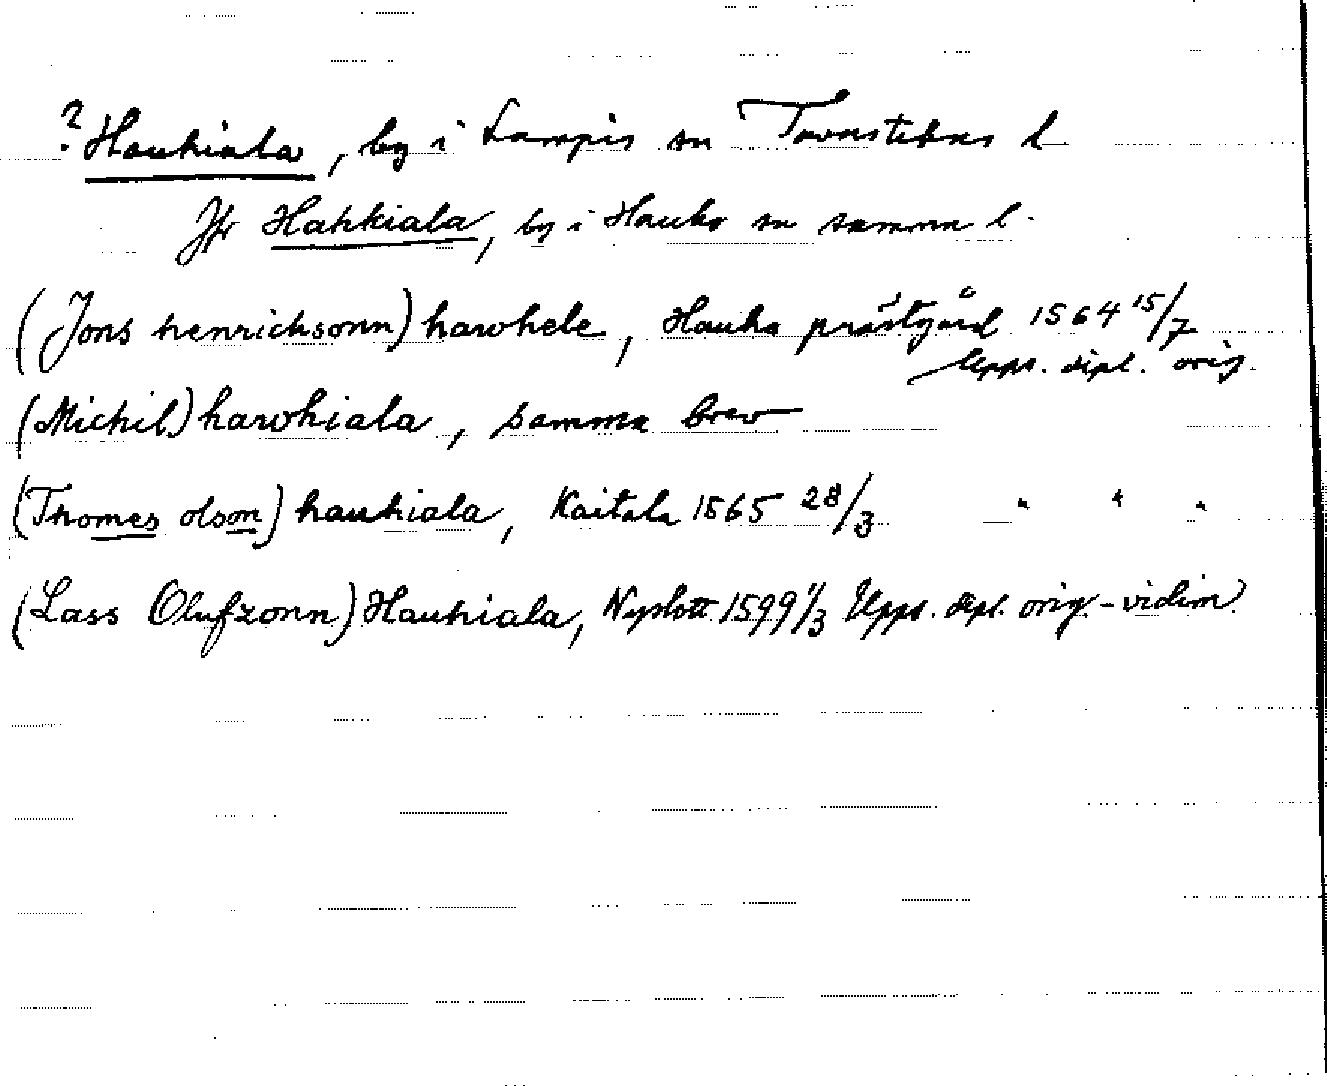 ? Hauhiala, by i Lampis sn Tavastehus l
Jfr Hahkiala, by i Hauho sn samma l.
(Jons henrichsonn) hawhele, Hauho prästgård 1564 15/7
Upps. dipl. orig.
(Michil) hawhiala, samma brev
(Thomes olson) hauhiala, Kaitala 1565 28/3 " " "
(Lass Olufzonn) Hauhiala, Nyslott 1599 1/3 Upps. dipl. orig.-vidim.